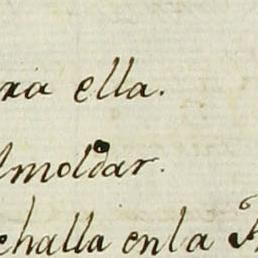 ella.
lmoldar.
ehalla enla